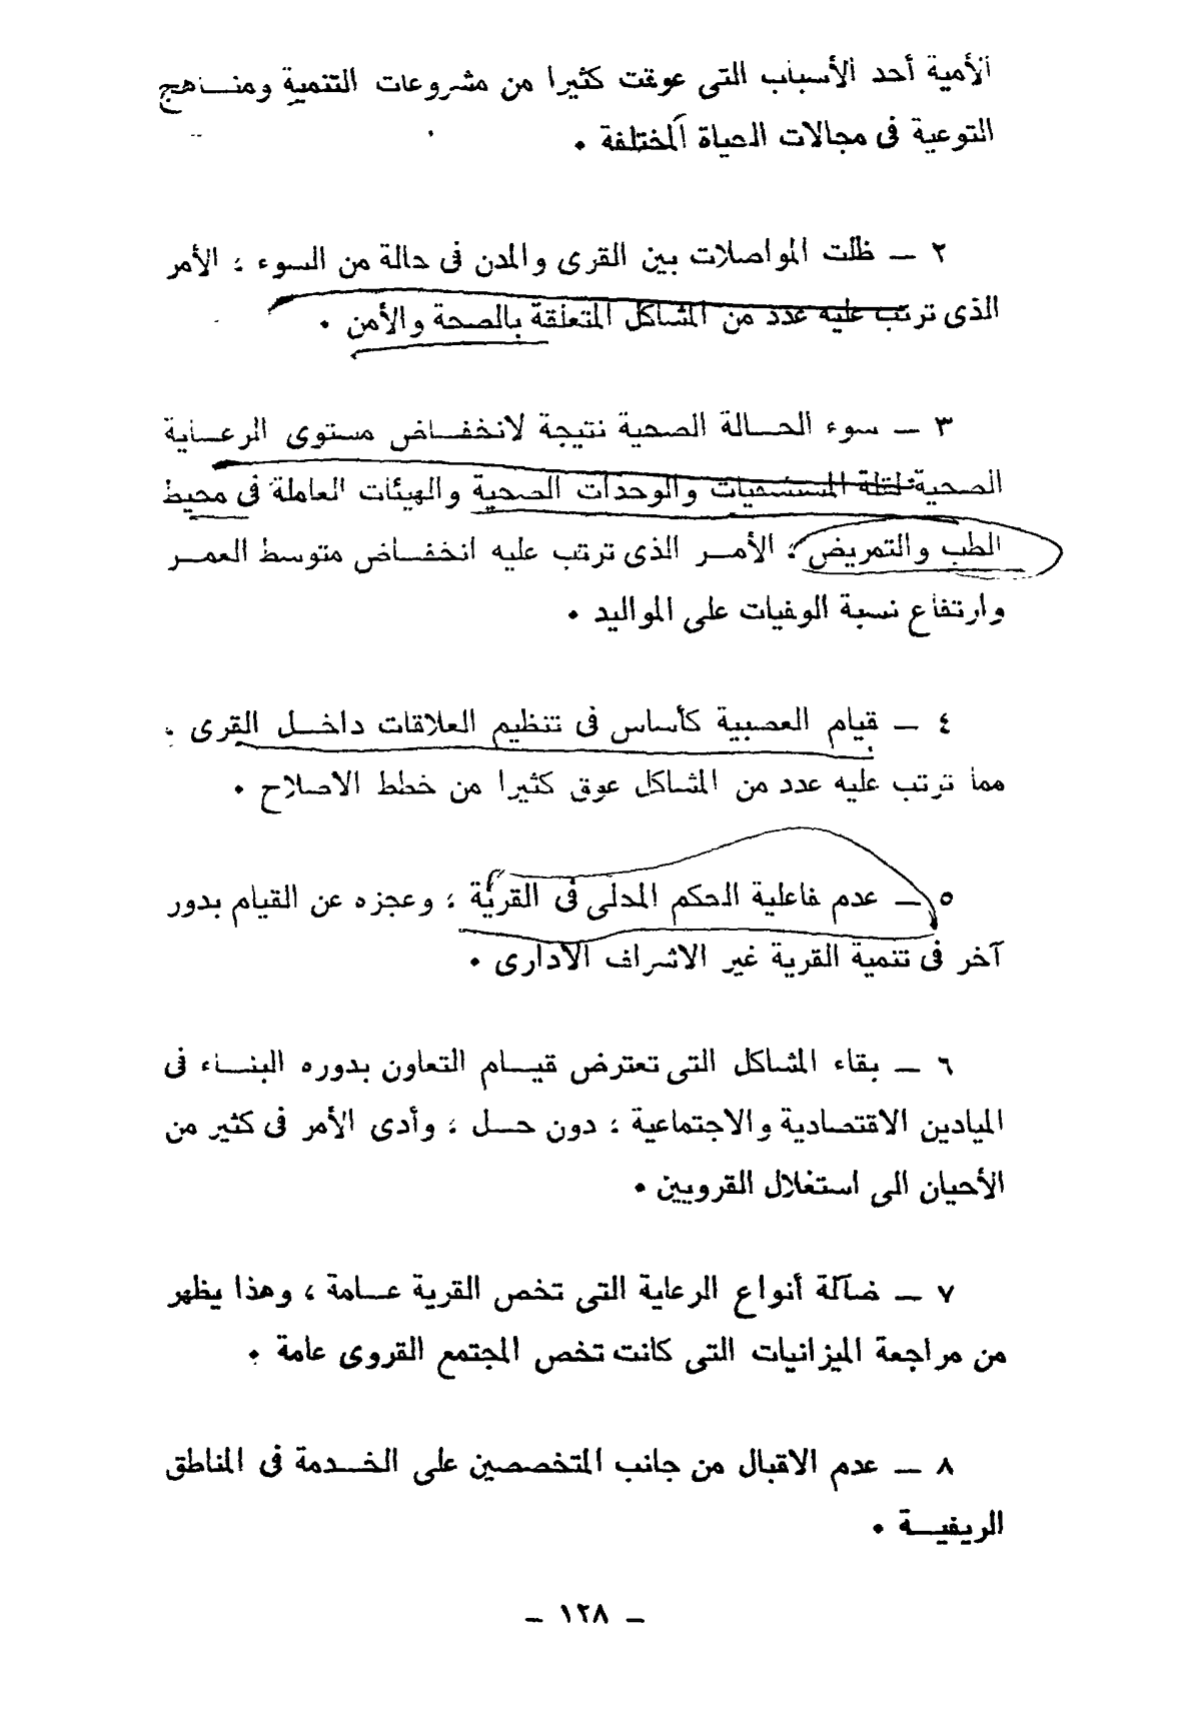 الأمية أحد الأسباب التى عوقت كثيرا من مشروعات التنمية ومنـــاهج
التوعية فى مجالات الحياة المختلفة •
٢ ــ ظلت المواصلات بين القرى والمدن فى حالة من السوء ، الأمر
الذى ترتب عليه عدد من المشاكل المتعلقة بالصحة والأمن •
٣ ــ سوء الحـــالة الصحية نتيجة لانخفـــاض مستوى الرعـــاية
الصحية لقلة المستشفيات والوحدات الصحية والهيئات العاملة فى محيط
الطب والتمريض ، الأمـــر الذى ترتب عليه انخفـــاض متوسط العمـــر
وارتفاع نسبة الوفيات على المواليد •
٤ ــ قيام العصبية كأساس فى تنظيم العلاقات داخـــل القرى ،
مما ترتب عليه عدد من المشاكل عوق كثيرا من خطط الاصلاح •
٥ ــ عدم فاعلية الحكم المحلى فى القرية ، وعجزه عن القيام بدور
آخر فى تنمية القرية غير الاشراف الادارى •
٦ ــ بقاء المشاكل التى تعترض قيـــام التعاون بدوره البنـــاء فى
الميادين الاقتصادية والاجتماعية ، دون حـــل ، وأدى الأمر فى كثير من
الأحيان الى استغلال القرويين •
٧ ــ ضآلة أنواع الرعاية التى تخص القرية عـــامة ، وهذا يظهر
من مراجعة الميزانيات التى كانت تخص المجتمع القروى عامة •
٨ ــ عدم الاقبال من جانب المتخصصين على الخـــدمة فى المناطق
الريفيـــة •
– ١٢٨ –